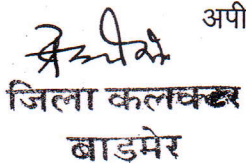 अपी
जिला कलक्टर
बाडमेर